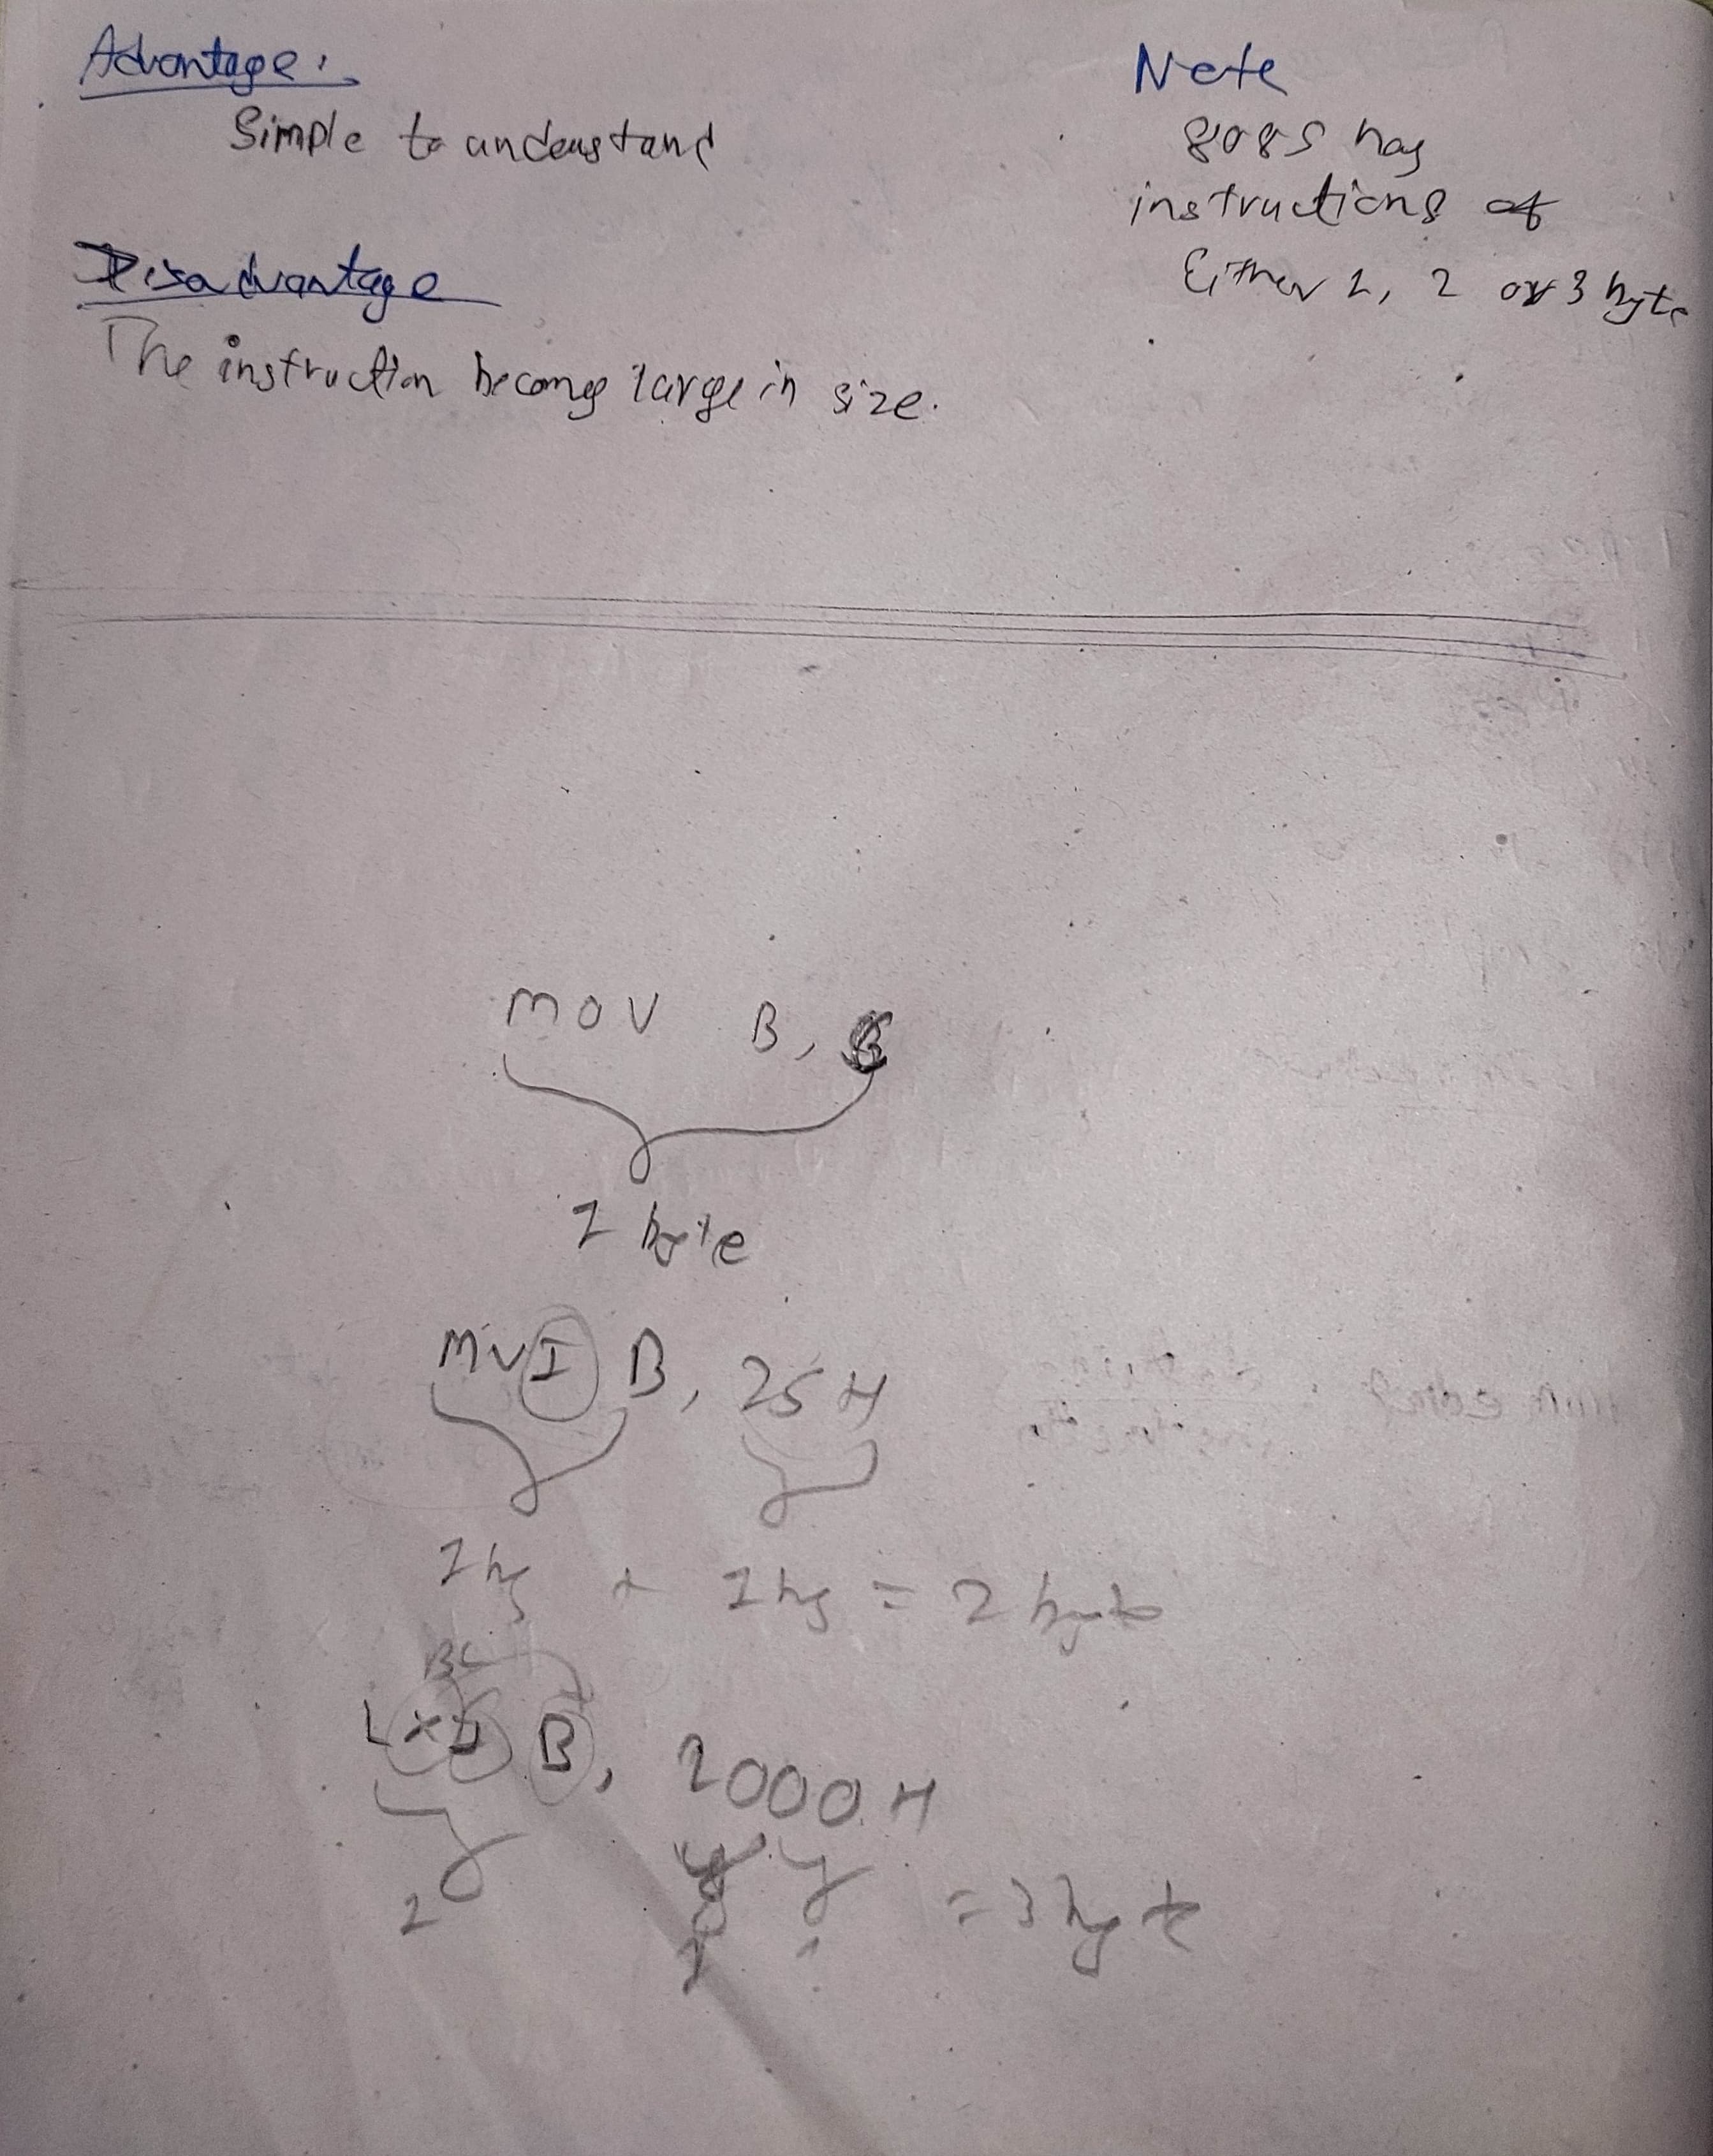 Advantage:
Simple to understand
Disadvantage
The instruction becomes large in size.
Note
8085 has
instructions of
Either 1, 2 or 3 byte
MOV B,
1 byte
MVI B, 25H
1 by + 1 by = 2 byte
BC
LXI B, 2000H
1 1 = 3 byte